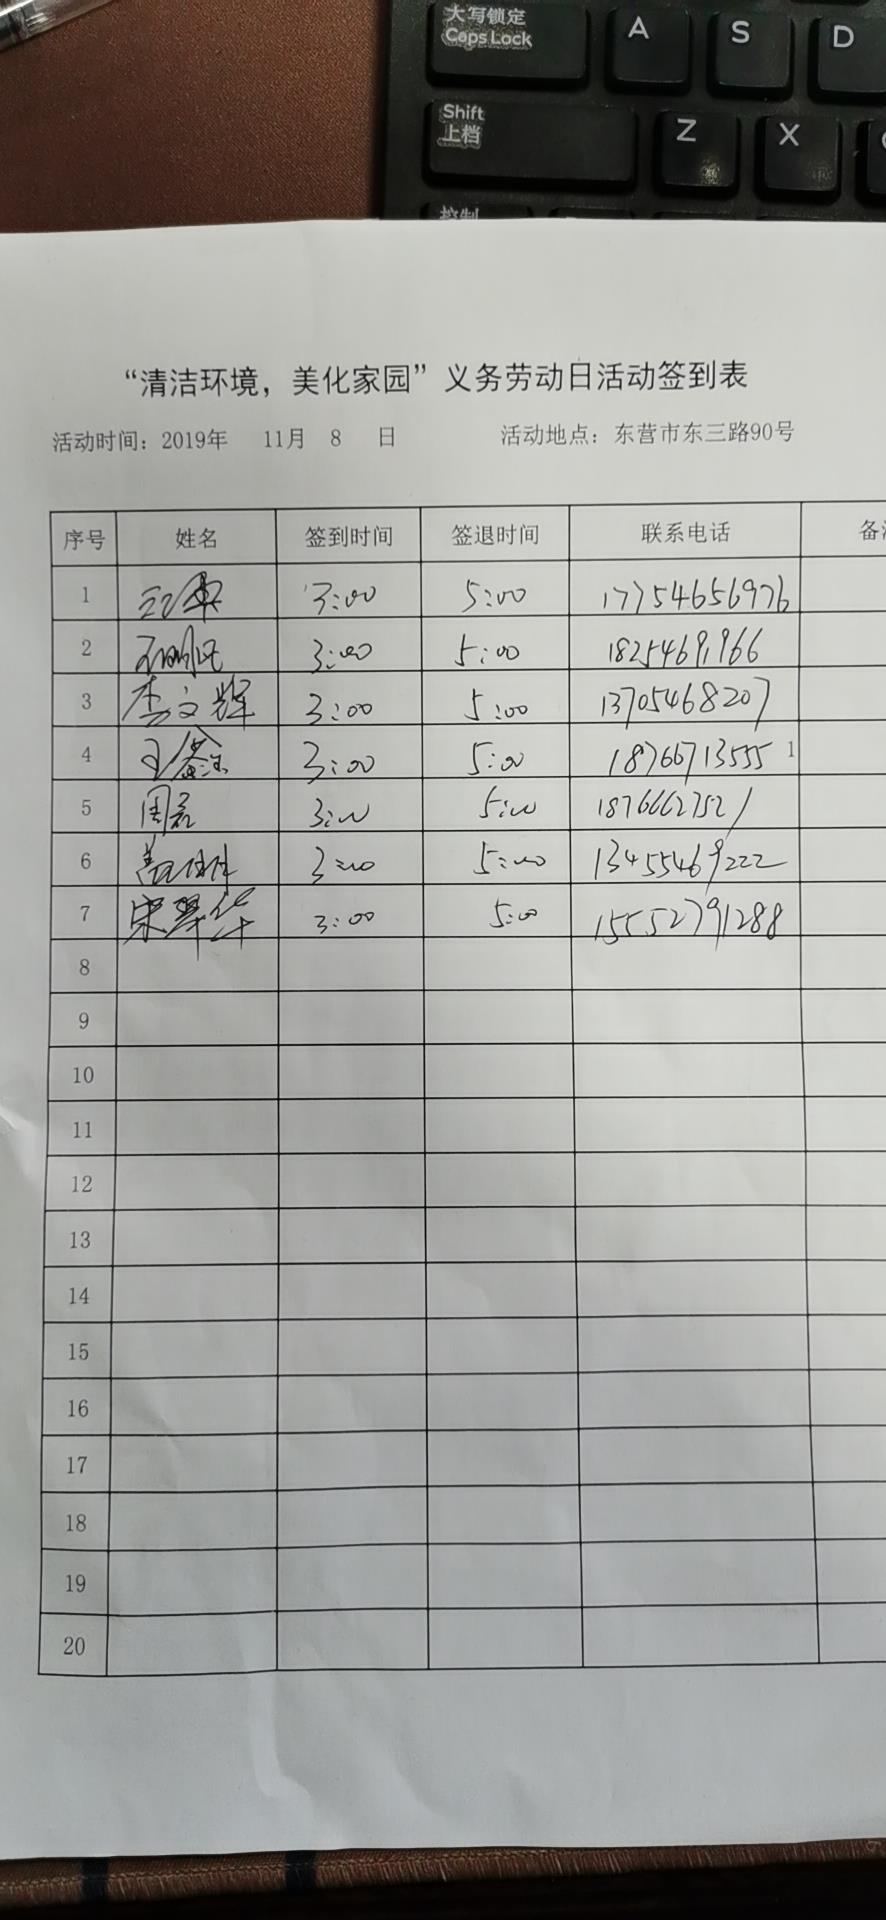 大写锁定
Caps Lock
A
S
D
Shift
上档
Z
X
控制
“清洁环境，美化家园”义务劳动日活动签到表
活动时间：2019年 11月 8 日 活动地点：东营市东三路90号
序号 姓名 签到时间 签退时间 联系电话
1 3:00 5:00 17754656976
2 3:00 5:00
3 李文辉 3:00 5:00 13705468207
4 3:00 5:00 18766713555 1
5 3:00 5:00 18766627521
6 3:00 5:00 13455469222
7 宋翠华 3:00 5:00 15552791288
8
9
10
11
12
13
14
15
16
17
18
19
20